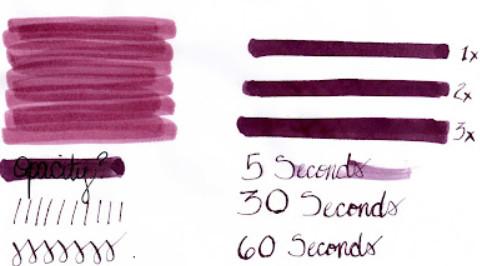 1x
2x
3x
Opacity?
5 Seconds
30 Seconds
60 Seconds